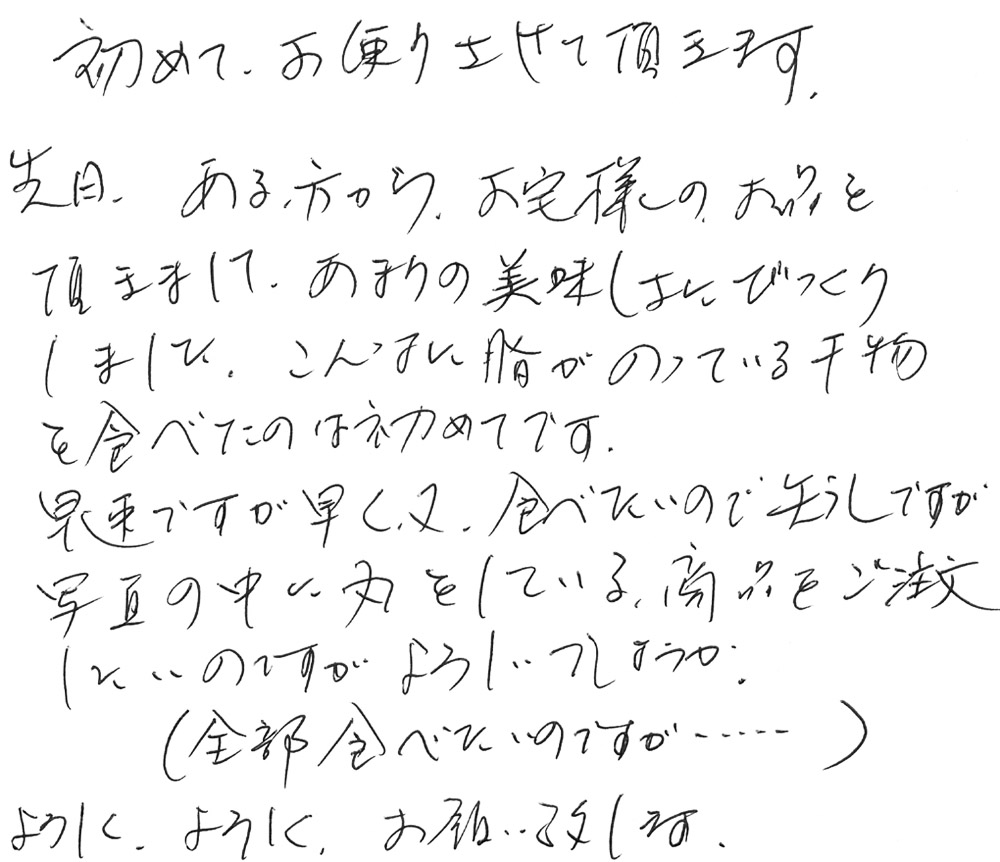 初めて、お便りさせて頂きます。
先日、ある方から、お宅様の、お品を
頂きまして、あまりの美味しさにびっくり
しました。こんなに脂がのっている干物
を食べたのは初めてです。
早速ですが早く、又、食べたいので失礼ですが
写真の中に丸をしている、商品をご注文
したいのですがよろしいでしょうか。
(全部食べたいのですが……)
よろしく、よろしく、お願い致します。